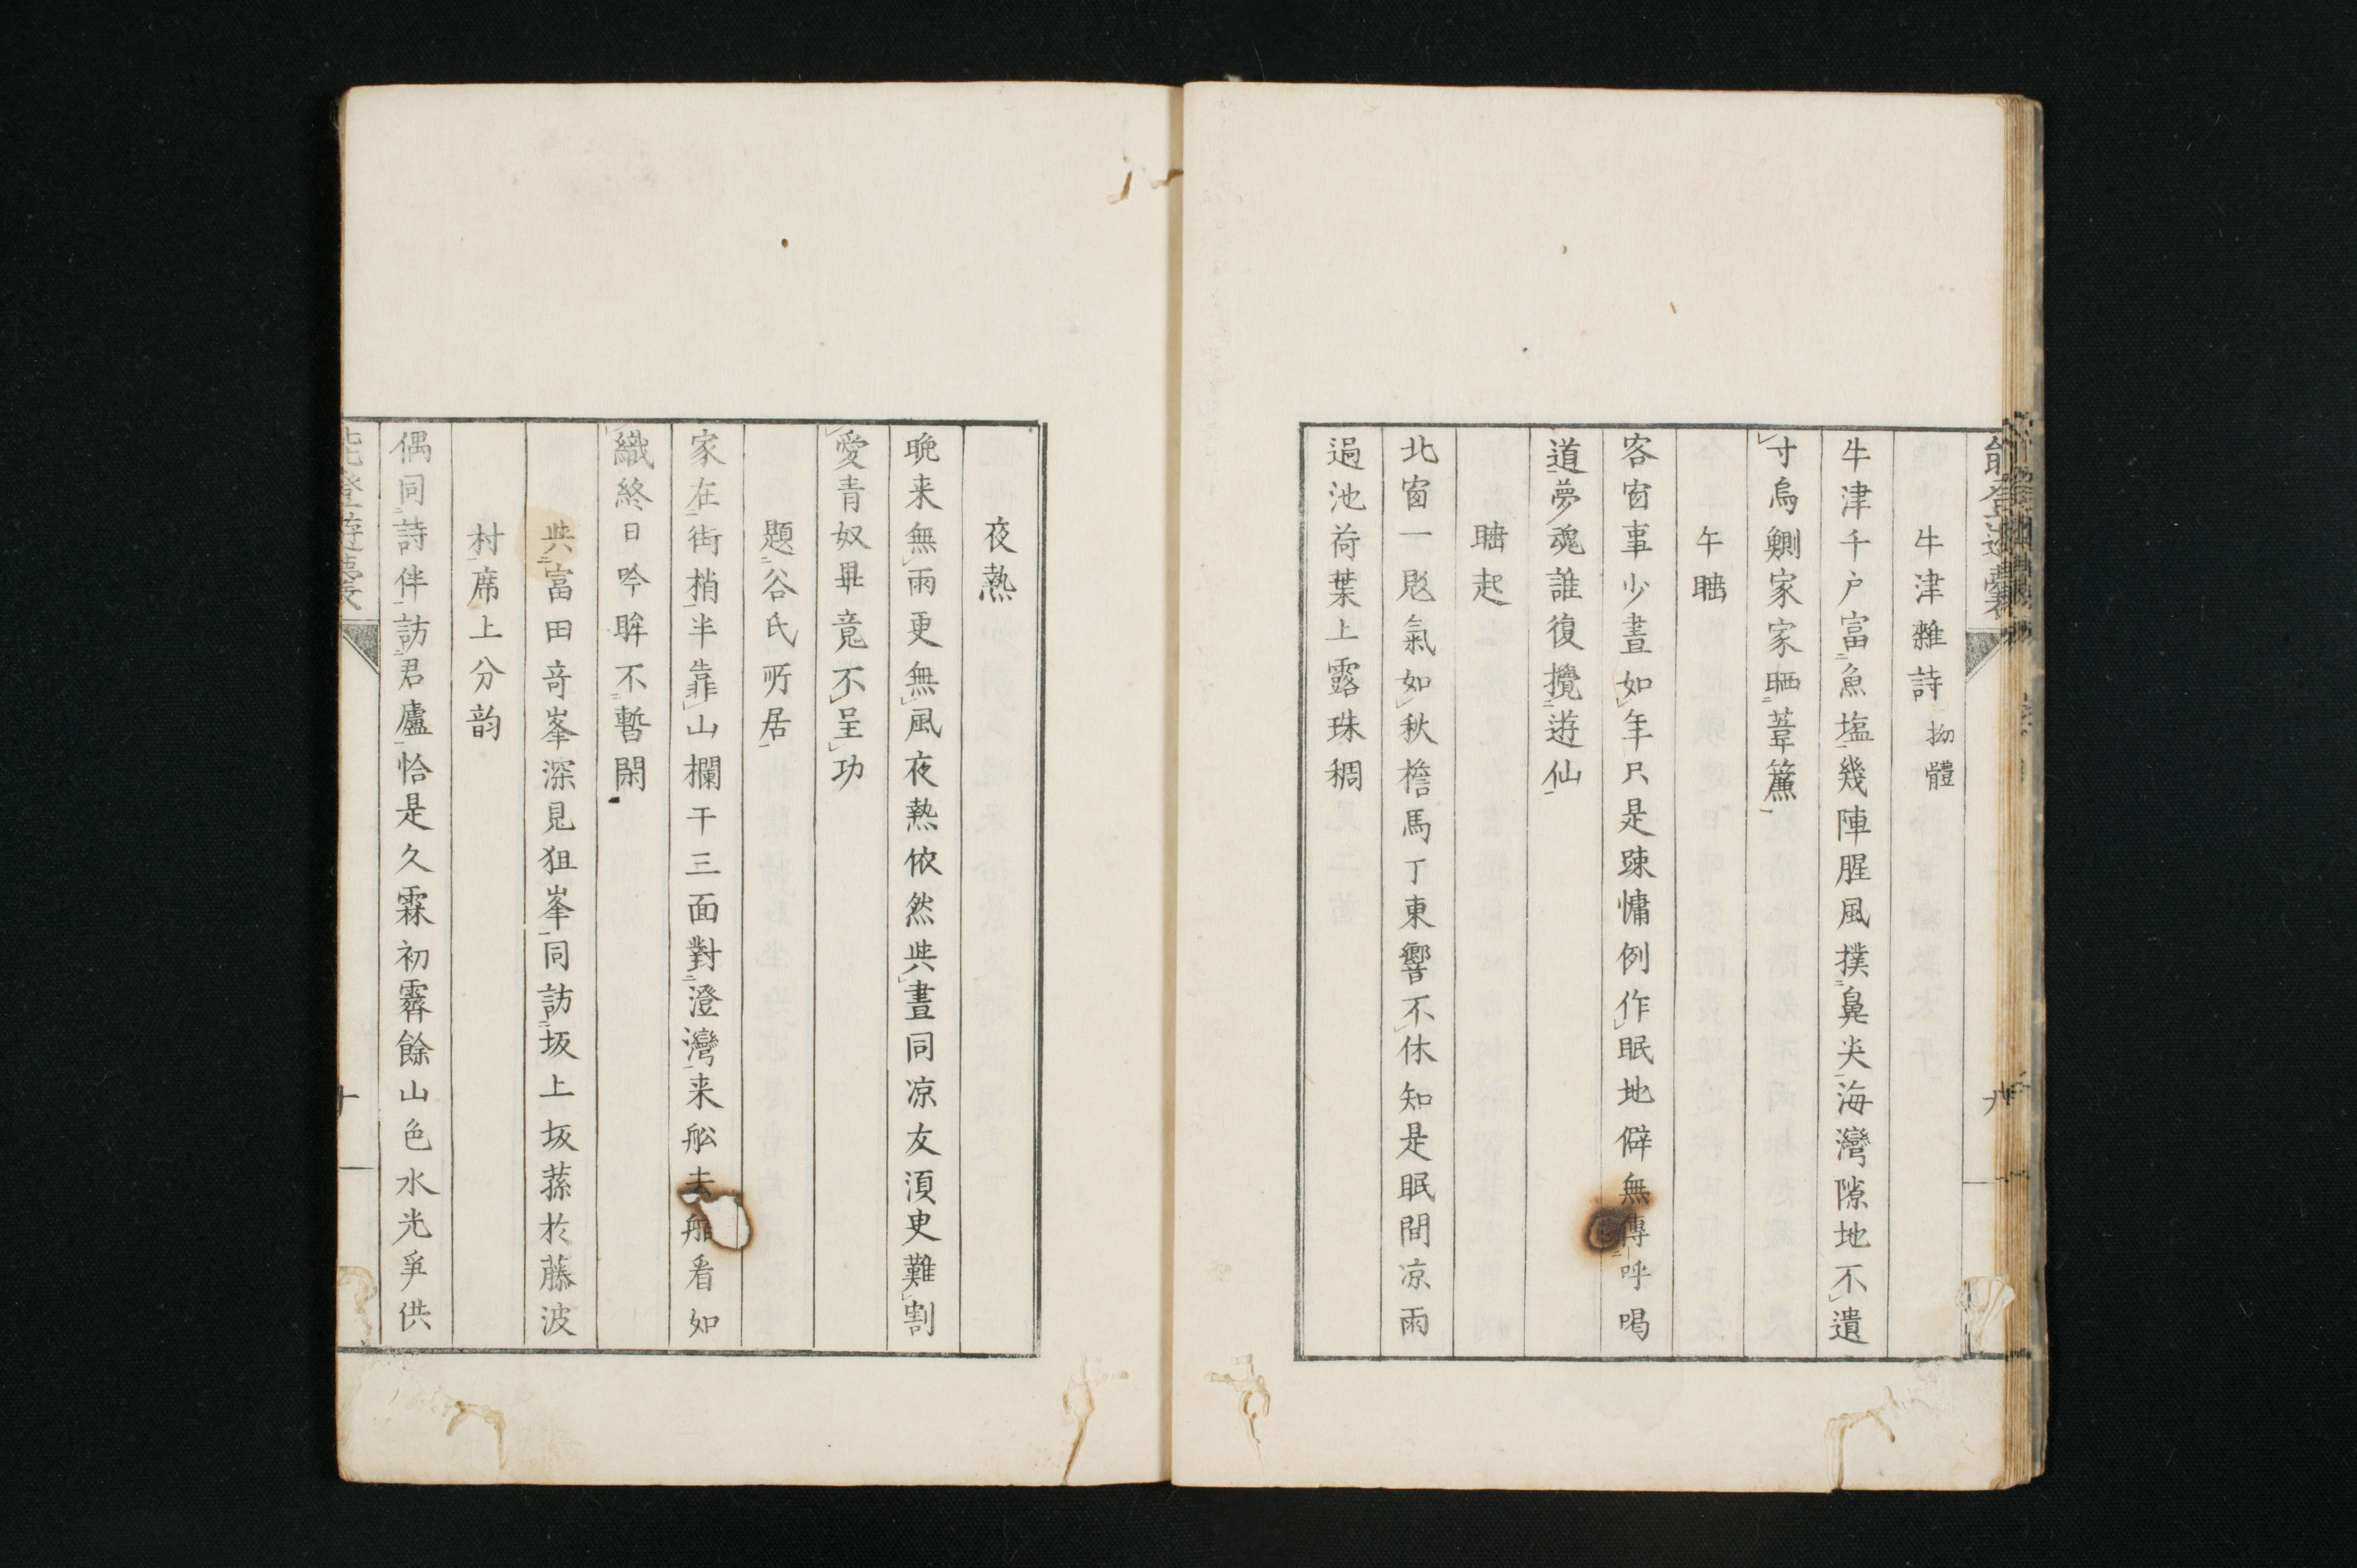 牛津雜詩 拗體
牛津千戶富魚塩幾陣腥風撲鼻尖海灣隙地不遺
寸烏鰂家家晒葦簾
午睡
客窗事少晝如年只是踈慵例作眠地僻無傳呼喝
道夢魂誰復攪遊仙
睡起
北窗一颸氣如秋檐馬丁東響不休知是眠間凉雨
過池荷葉上露珠稠
九
夜熱
晚来無雨更無風夜熱依然與晝同凉友須臾難割
愛青奴畢竟不呈功
題谷氏所居
家在街梢半靠山欄干三面對澄灣来舩去舶看如
織終日吟眸不暫閑
與富田奇峯深見狙峯同訪坂上坂蓀於藤波
村席上分韵
偶同詩伴訪君廬恰是久霖初霽餘山色水光爭供
能登遊囊
十